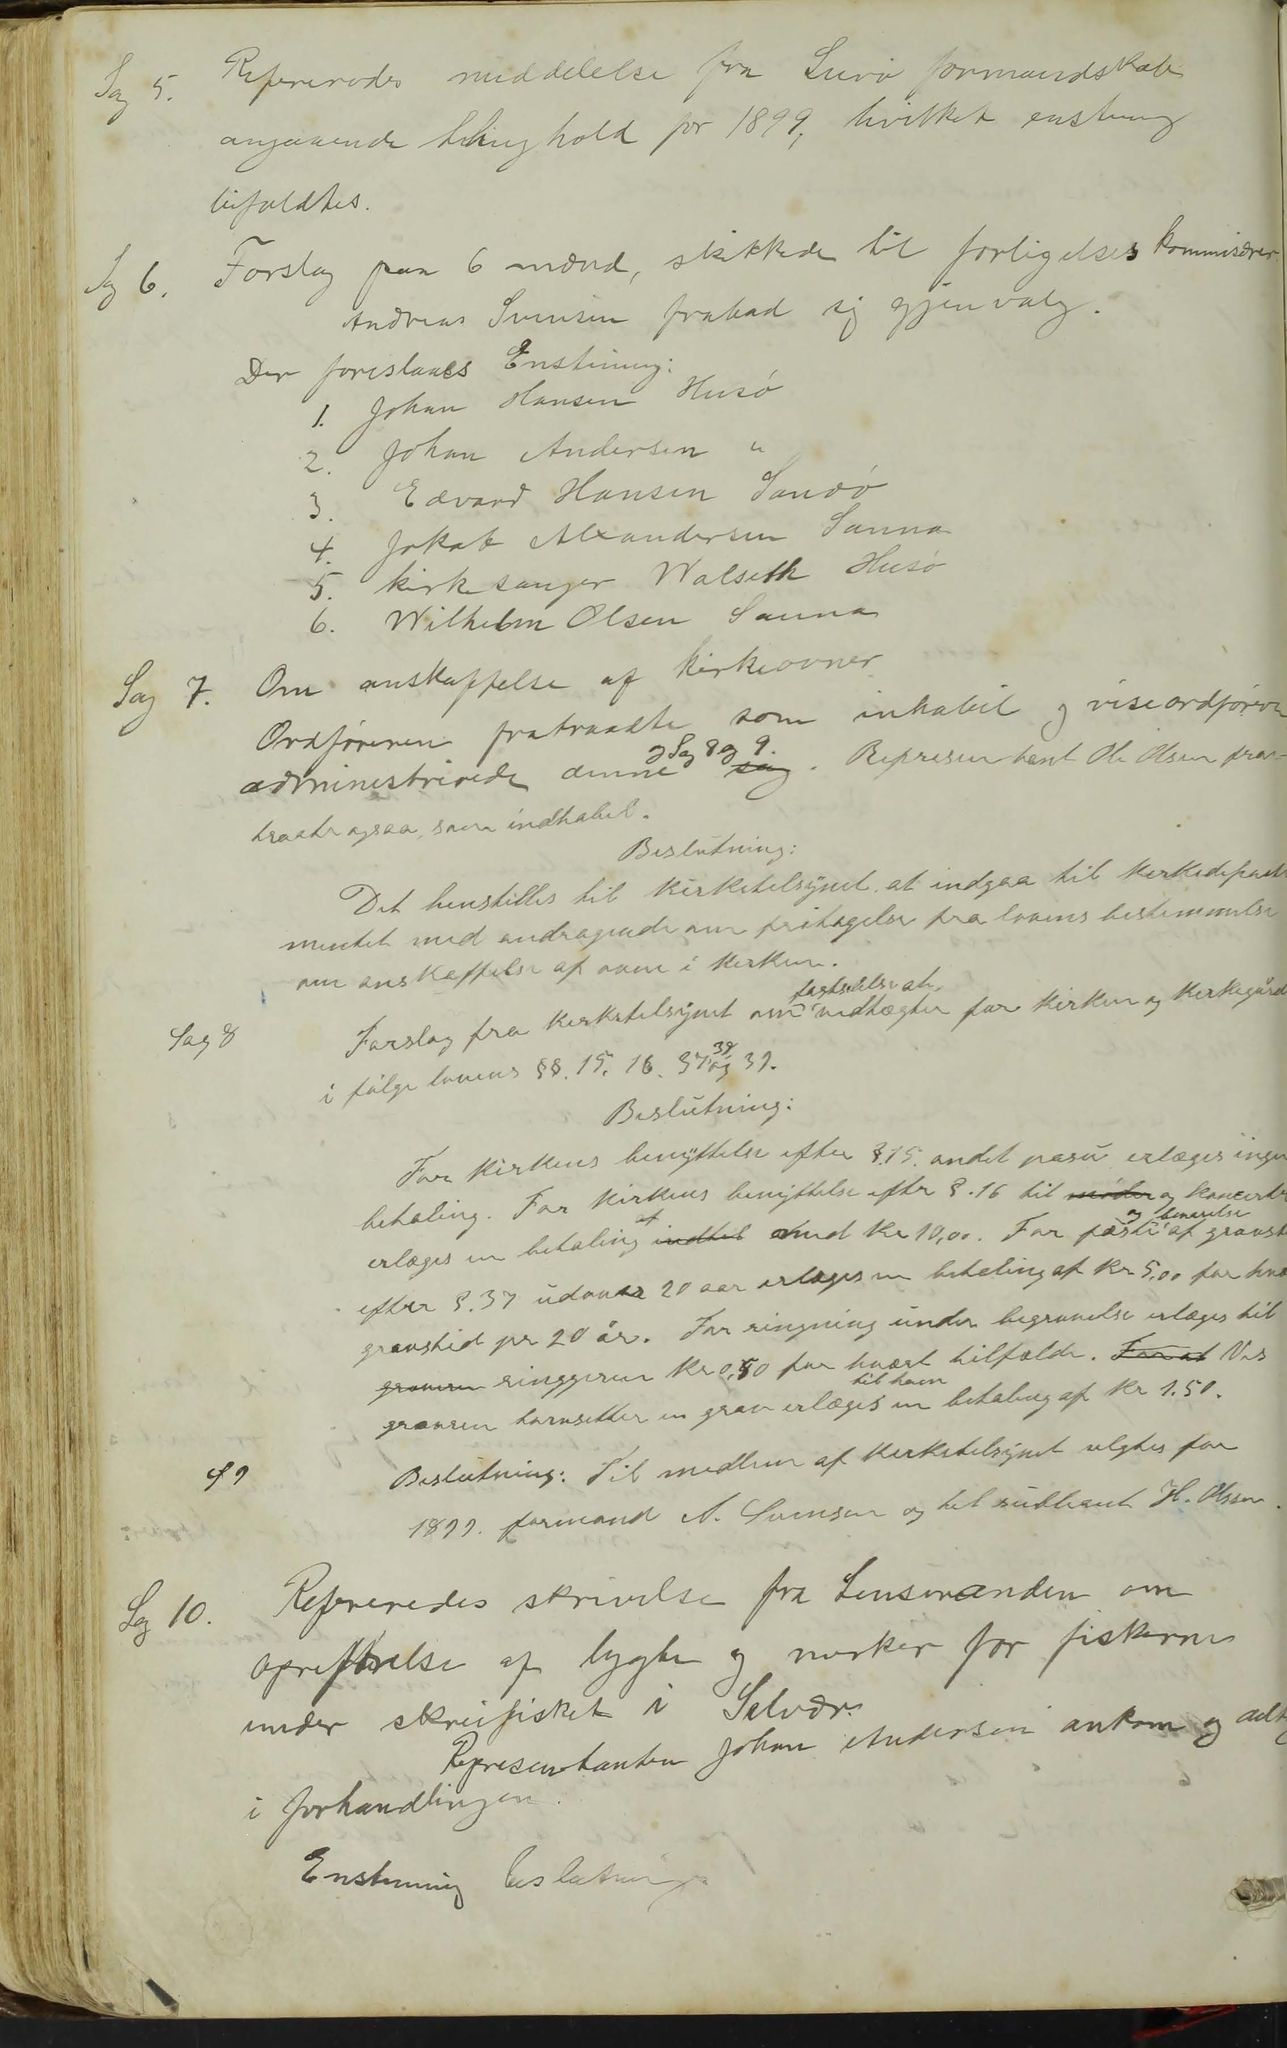 Sag 5. Refereredes meddelelse fra Lurø formandskab
angaaende thinghold for 1899, hvilket enstemig
bifaldtes.
Sag 6. Forslag paa 6 mænd, skikkede til forligelses kommisærer.
Andreas Svensen frabad sig gjenvalg.
Der foreslaaes Enstemig:
1. Johan Hansen Husø
2. Johan Andersen "
3. Edvard Hansen Sandø
4. Jakob Alexandersen Sanna
5. kirkesanger Walseth Husø
6. Wilhelm Olsen Sanna
Sag 7. Om anskaffelse af kirkeovner
Ordføreren fratraadte som inhabil og viseordføreren
administrerede denne og Sag 8 og 9. sag. Representant Ole Olsen fra-
traadte ogsaa, som indhabil.
Beslutning:
Det henstilles til kirketilsynet at indgaa til kirkedeparte
mentet med andragende om fritagelse fra lovens bestemmelse
om anskaffelse af ovn i kirken.
Sag 8 Forslag fra kirketilsynet om fastsettelse af vedtægter for kirken og kirkegård
i følge lovens §§. 15, 16. 37, 38 og 39.
Beslutning:
For kirkens benyttelse efter §.15. andet pasu erlægges ingen
betaling. For kirkens benyttelse efter §.16 til møder og koncerter
erlægges en betaling af indtil Kr 10,00. For fæste og bevarelse af gravsted
efter §.37 udover 20 aar erlægges en betaling af Kr 5,00 for hvert
gravsted pr 20 år. For ringning under begravelse erlægges til
graveren ringeren Kr 0,50 for hvært tilfælde. For at Vis
graveren tornsetter en grav erlægges til ham en betaling af Kr 1.50.
S 9 Beslutning: Til medlem af kirketilsynet valgtes for
1899. formand A. Svensen og til supleant H. Olsen.
Sag 10. Refereredes skrivelse fra Lensmanden om
oprettelse af lygte og merker for fiskerne
under skreifisket i Selvær.
Representanten Johan Andersen ankom og deltog
i forhandlingen.
Enstemmig beslutning: